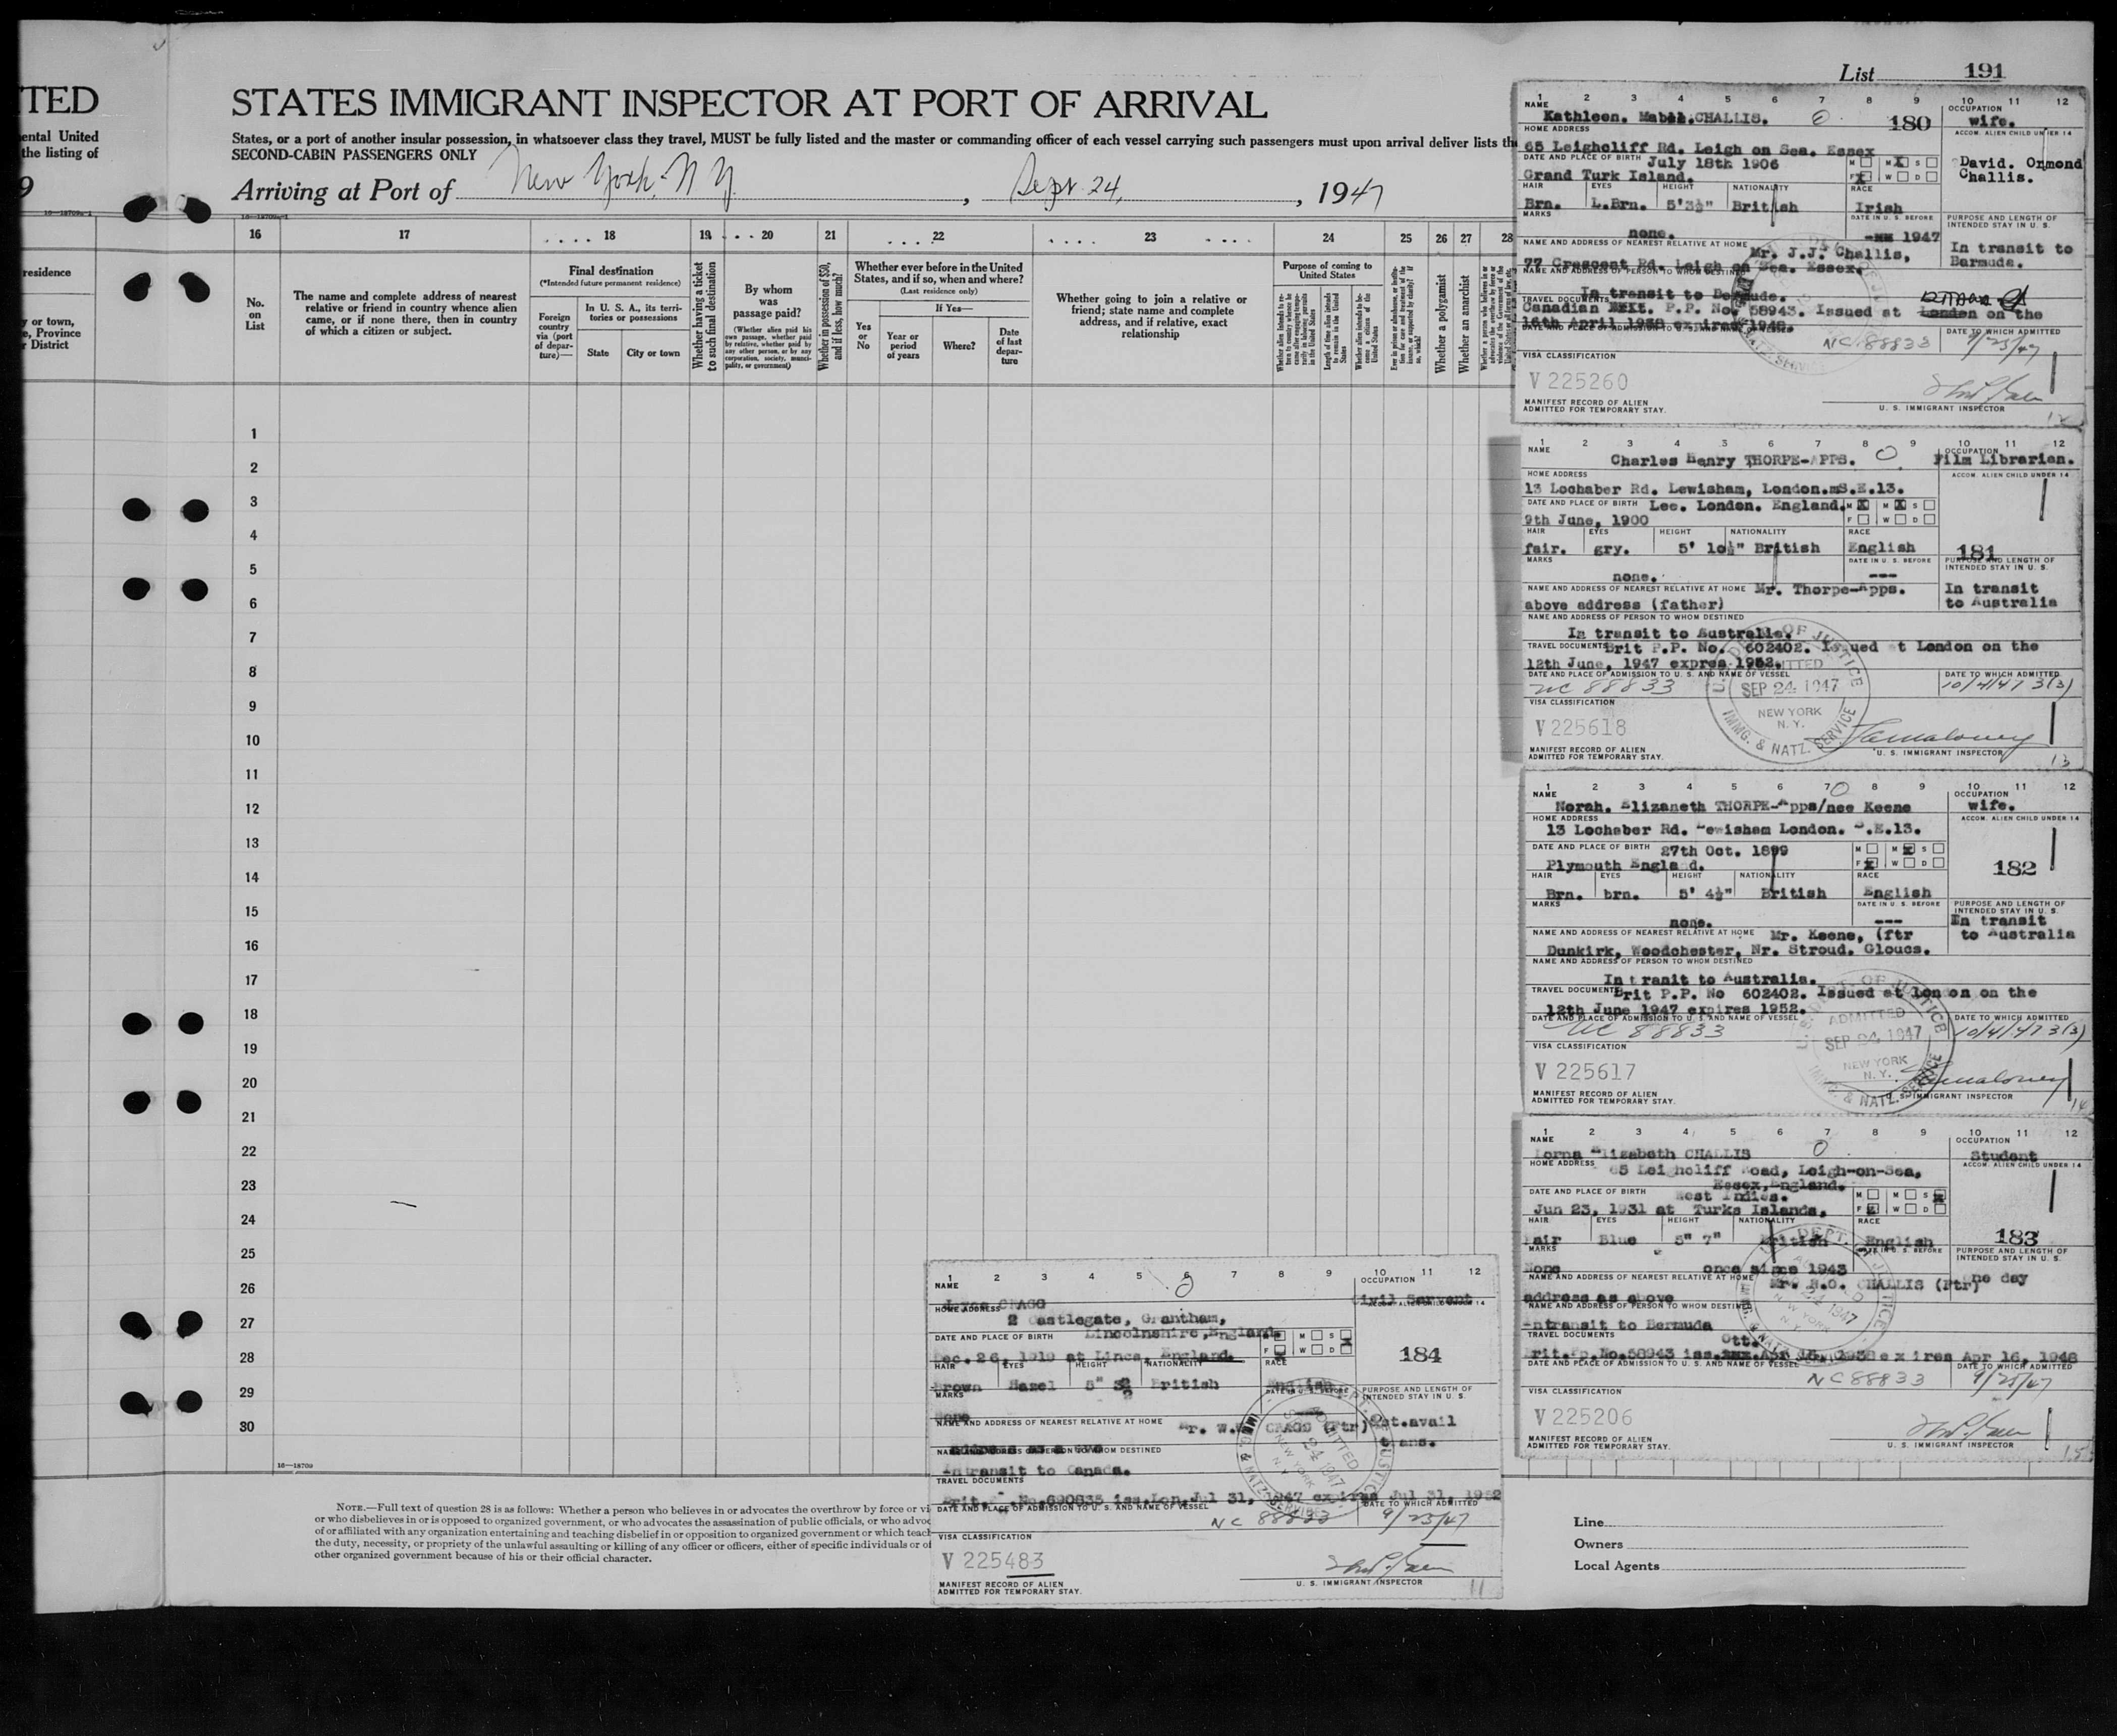 List 191
TED
STATES IMMIGRANT INSPECTOR AT PORT OF ARRIVAL
ental United
the listing of
9
States, or a port of another insular possession, in whatsoever class they travel, MUST be fully listed and the master or commanding officer of each vessel carrying such passengers must upon arrival deliver lists th
SECOND-CABIN PASSENGERS ONLY
Arriving at Port of New York. N Y. , Sept 24, , 1947
16 17 18 19 20 21 22 23 24 25 26 27 28
residence
y or town,
e, Province
r District
No. on List
The name and complete address of nearest relative or friend in country whence alien came, or if none there, then in country of which a citizen or subject.
Final destination
(*Intended future permanent residence)
Foreign country via (port of departure)—
In U. S. A., its territories or possessions
State
City or town
Whether having a ticket to such final destination
By whom was passage paid?
(Whether alien paid his own passage, whether paid by relative, whether paid by any other person, or by any corporation, society, municipality, or government)
Whether in possession of $50, and if less, how much?
Whether ever before in the United States, and if so, when and where?
(Last residence only)
Yes or No
If Yes—
Year or period of years
Where?
Date of last departure
Whether going to join a relative or friend; state name and complete address, and if relative, exact relationship
Purpose of coming to United States
Whether a polygamist
Whether an anarchist
1
2
3
4
5
6
7
8
9
10
11
12
13
14
15
16
17
18
19
20
21
22
23
24
25
26
27
28
29
30
16—18709
NOTE.—Full text of question 28 is as follows: Whether a person who believes in or advocates the overthrow by force or vi
or who disbelieves in or is opposed to organized government, or who advocates the assassination of public officials, or who advoc
of or affiliated with any organization entertaining and teaching disbelief in or opposition to organized government or which teach
the duty, necessity, or propriety of the unlawful assaulting or killing of any officer or officers, either of specific individuals or of
other organized government because of his or their official character.
Line
Owners
Local Agents
1 2 3 4 5 6 7 8 9 10 11 12
NAME
Kathleen. Mabel.CHALLIS.
180
OCCUPATION
wife.
HOME ADDRESS
65 Leighcliff Rd. Leigh on Sea. Essex
ACCOM. ALIEN CHILD UNDER 14
David. Ormond
Challis.
DATE AND PLACE OF BIRTH July 18th 1906
Grand Turk Island.
M M X S
F X W D
HAIR EYES HEIGHT NATIONALITY RACE
Brn. L.Brn. 5'3½" British Irish
MARKS
none.
DATE IN U. S. BEFORE
1947
PURPOSE AND LENGTH OF INTENDED STAY IN U. S.
In transit to
Bermuda.
NAME AND ADDRESS OF NEAREST RELATIVE AT HOME Mr. J.J. Challis,
77 Crescent Rd. Leigh on Sea. Essex.
NAME AND ADDRESS OF PERSON TO WHOM DESTINED
In transit to Bermuda.
TRAVEL DOCUMENTS
Canadian P.P. No. 58943. Issued at London on the
16th April 1938 expires 1948.
NC 88833
DATE TO WHICH ADMITTED
9/25/47
VISA CLASSIFICATION
V 225260
MANIFEST RECORD OF ALIEN
ADMITTED FOR TEMPORARY STAY.
U. S. IMMIGRANT INSPECTOR
12
1 2 3 4 5 6 7 8 9 10 11 12
NAME
Charles Henry THORPE-APPS.
OCCUPATION
Film Librarian.
HOME ADDRESS
13 Lochaber Rd. Lewisham, London.mS.E.13.
ACCOM. ALIEN CHILD UNDER 14
DATE AND PLACE OF BIRTH Lee. London. England.
9th June, 1900
M X M X S
F W D
HAIR EYES HEIGHT NATIONALITY RACE
fair. gry. 5' 10½" British English
181
MARKS
none.
DATE IN U. S. BEFORE
---
PURPOSE AND LENGTH OF INTENDED STAY IN U. S.
In transit
to Australia
NAME AND ADDRESS OF NEAREST RELATIVE AT HOME Mr. Thorpe-Apps.
above address (father)
NAME AND ADDRESS OF PERSON TO WHOM DESTINED
In transit to Australia.
TRAVEL DOCUMENTS Brit P.P. No. 602402. Issued at London on the
12th June, 1947 expres 1952.
DATE AND PLACE OF ADMISSION TO U. S. AND NAME OF VESSEL
NC 88833
DATE TO WHICH ADMITTED
10/4/47 3(3)
ADMITTED
SEP 24 1947
NEW YORK
N. Y.
IMMG. & NATZ. SERVICE
VISA CLASSIFICATION
V 225618
MANIFEST RECORD OF ALIEN
ADMITTED FOR TEMPORARY STAY.
U. S. IMMIGRANT INSPECTOR
13
1 2 3 4 5 6 7 8 9 10 11 12
NAME
Norah. Elizaneth THORPE-Apps/nee Keene
OCCUPATION
wife.
HOME ADDRESS
13 Lochaber Rd. Lewisham London. S.E.13.
ACCOM. ALIEN CHILD UNDER 14
DATE AND PLACE OF BIRTH 27th Oct. 1899
Plymouth England.
M M X S
F X W D
182
HAIR EYES HEIGHT NATIONALITY RACE
Brn. brn. 5' 4½" British English
MARKS
none.
DATE IN U. S. BEFORE
---
PURPOSE AND LENGTH OF INTENDED STAY IN U. S.
In transit
to Australia
NAME AND ADDRESS OF NEAREST RELATIVE AT HOME Mr. Keene, (ftr
Dunkirk, Woodchester, Nr. Stroud. Gloucs.
NAME AND ADDRESS OF PERSON TO WHOM DESTINED
In tranit to Australia.
TRAVEL DOCUMENTS Brit P.P. No 602402. Issued at London on the
12th June 1947 expires 1952.
DATE AND PLACE OF ADMISSION TO U. S. AND NAME OF VESSEL
NC 88833
DATE TO WHICH ADMITTED
10/4/47 3(3)
ADMITTED
SEP 24 1947
NEW YORK
N. Y.
VISA CLASSIFICATION
V 225617
MANIFEST RECORD OF ALIEN
ADMITTED FOR TEMPORARY STAY.
U. S. IMMIGRANT INSPECTOR
14
1 2 3 4 5 6 7 8 9 10 11 12
NAME
Lorna Elizabeth CHALLIS
OCCUPATION
Student
HOME ADDRESS
65 Leighcliff Road, Leigh-on-Sea,
Essex, England.
ACCOM. ALIEN CHILD UNDER 14
DATE AND PLACE OF BIRTH West Indies.
Jun 23, 1931 at Turks Islands,
M M S X
F X W D
HAIR EYES HEIGHT NATIONALITY RACE
Fair Blue 5" 7" British English
183
MARKS
None once since 1943
DATE IN U. S. BEFORE
PURPOSE AND LENGTH OF INTENDED STAY IN U. S.
One day
NAME AND ADDRESS OF NEAREST RELATIVE AT HOME
CHALLIS (Ftr)
address as above
NAME AND ADDRESS OF PERSON TO WHOM DESTINED
Intransit to Bermuda
TRAVEL DOCUMENTS
Ott.
Brit.Pp.No.58943 iss. Apr 16, 1938 expires Apr 16, 1948
DATE AND PLACE OF ADMISSION TO U. S. AND NAME OF VESSEL
NC 88833
DATE TO WHICH ADMITTED
9/25/47
VISA CLASSIFICATION
V 225206
MANIFEST RECORD OF ALIEN
ADMITTED FOR TEMPORARY STAY.
U. S. IMMIGRANT INSPECTOR
15
1 2 3 4 5 6 7 8 9 10 11 12
NAME
CRAGG
OCCUPATION
Civil Servent
HOME ADDRESS
2 Castlegate, Grantham,
Lincolnshire, England.
DATE AND PLACE OF BIRTH
Dec. 26, 1919 at Lincs, England.
M M S X
F X W D
184
HAIR EYES HEIGHT NATIONALITY RACE
Brown Hazel British English
MARKS
None
PURPOSE AND LENGTH OF INTENDED STAY IN U. S.
avail
trans.
NAME AND ADDRESS OF NEAREST RELATIVE AT HOME
Mr. W. CRAGG (Ftr)
NAME AND ADDRESS OF PERSON TO WHOM DESTINED
Intransit to Canada.
TRAVEL DOCUMENTS
Brit. No.690835 iss.Lon.Jul 31, 1947 expires Jul 31, 1952
DATE AND PLACE OF ADMISSION TO U. S. AND NAME OF VESSEL
NC 88833
DATE TO WHICH ADMITTED
9/25/47
VISA CLASSIFICATION
V 225483
MANIFEST RECORD OF ALIEN
ADMITTED FOR TEMPORARY STAY.
U. S. IMMIGRANT INSPECTOR
11